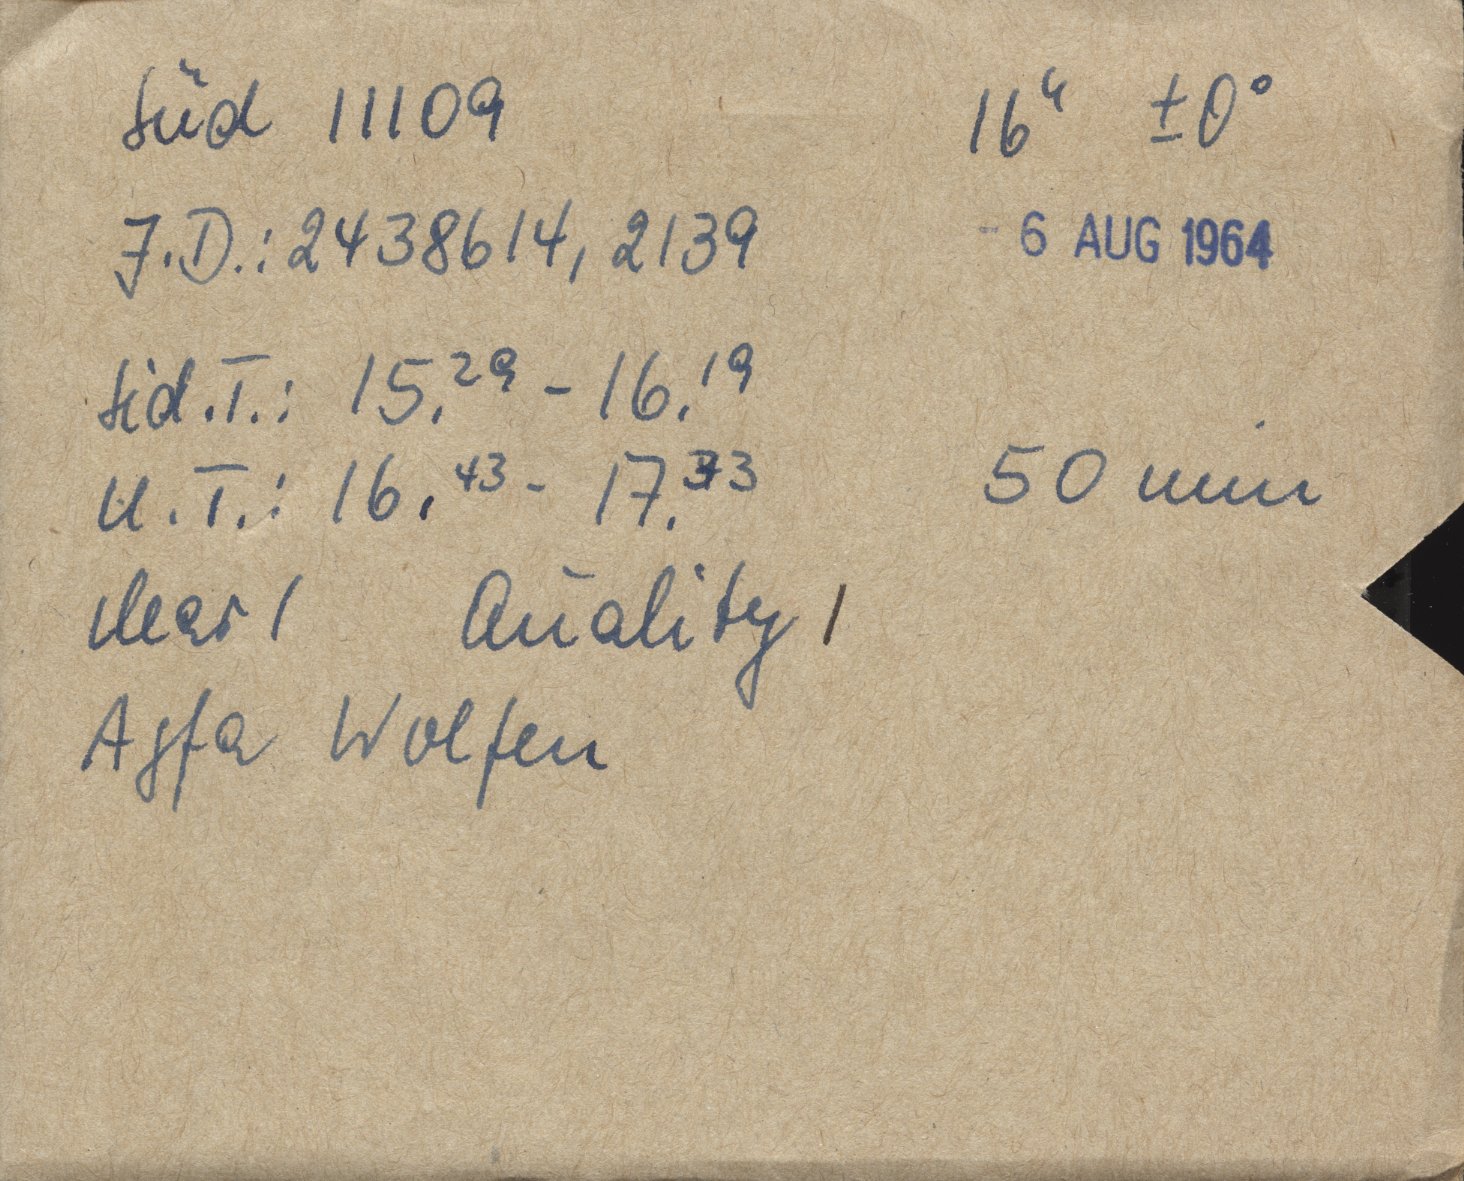 Süd 11109 16ʰ ±0°
J.D.: 2438614,2139 - 6 AUG 1964
Sid.T.: 15.²⁹ - 16.¹⁹
U.T.: 16.⁴³ - 17.³³ 50 min
clear 1 Quality 1
Agfa Wolfen